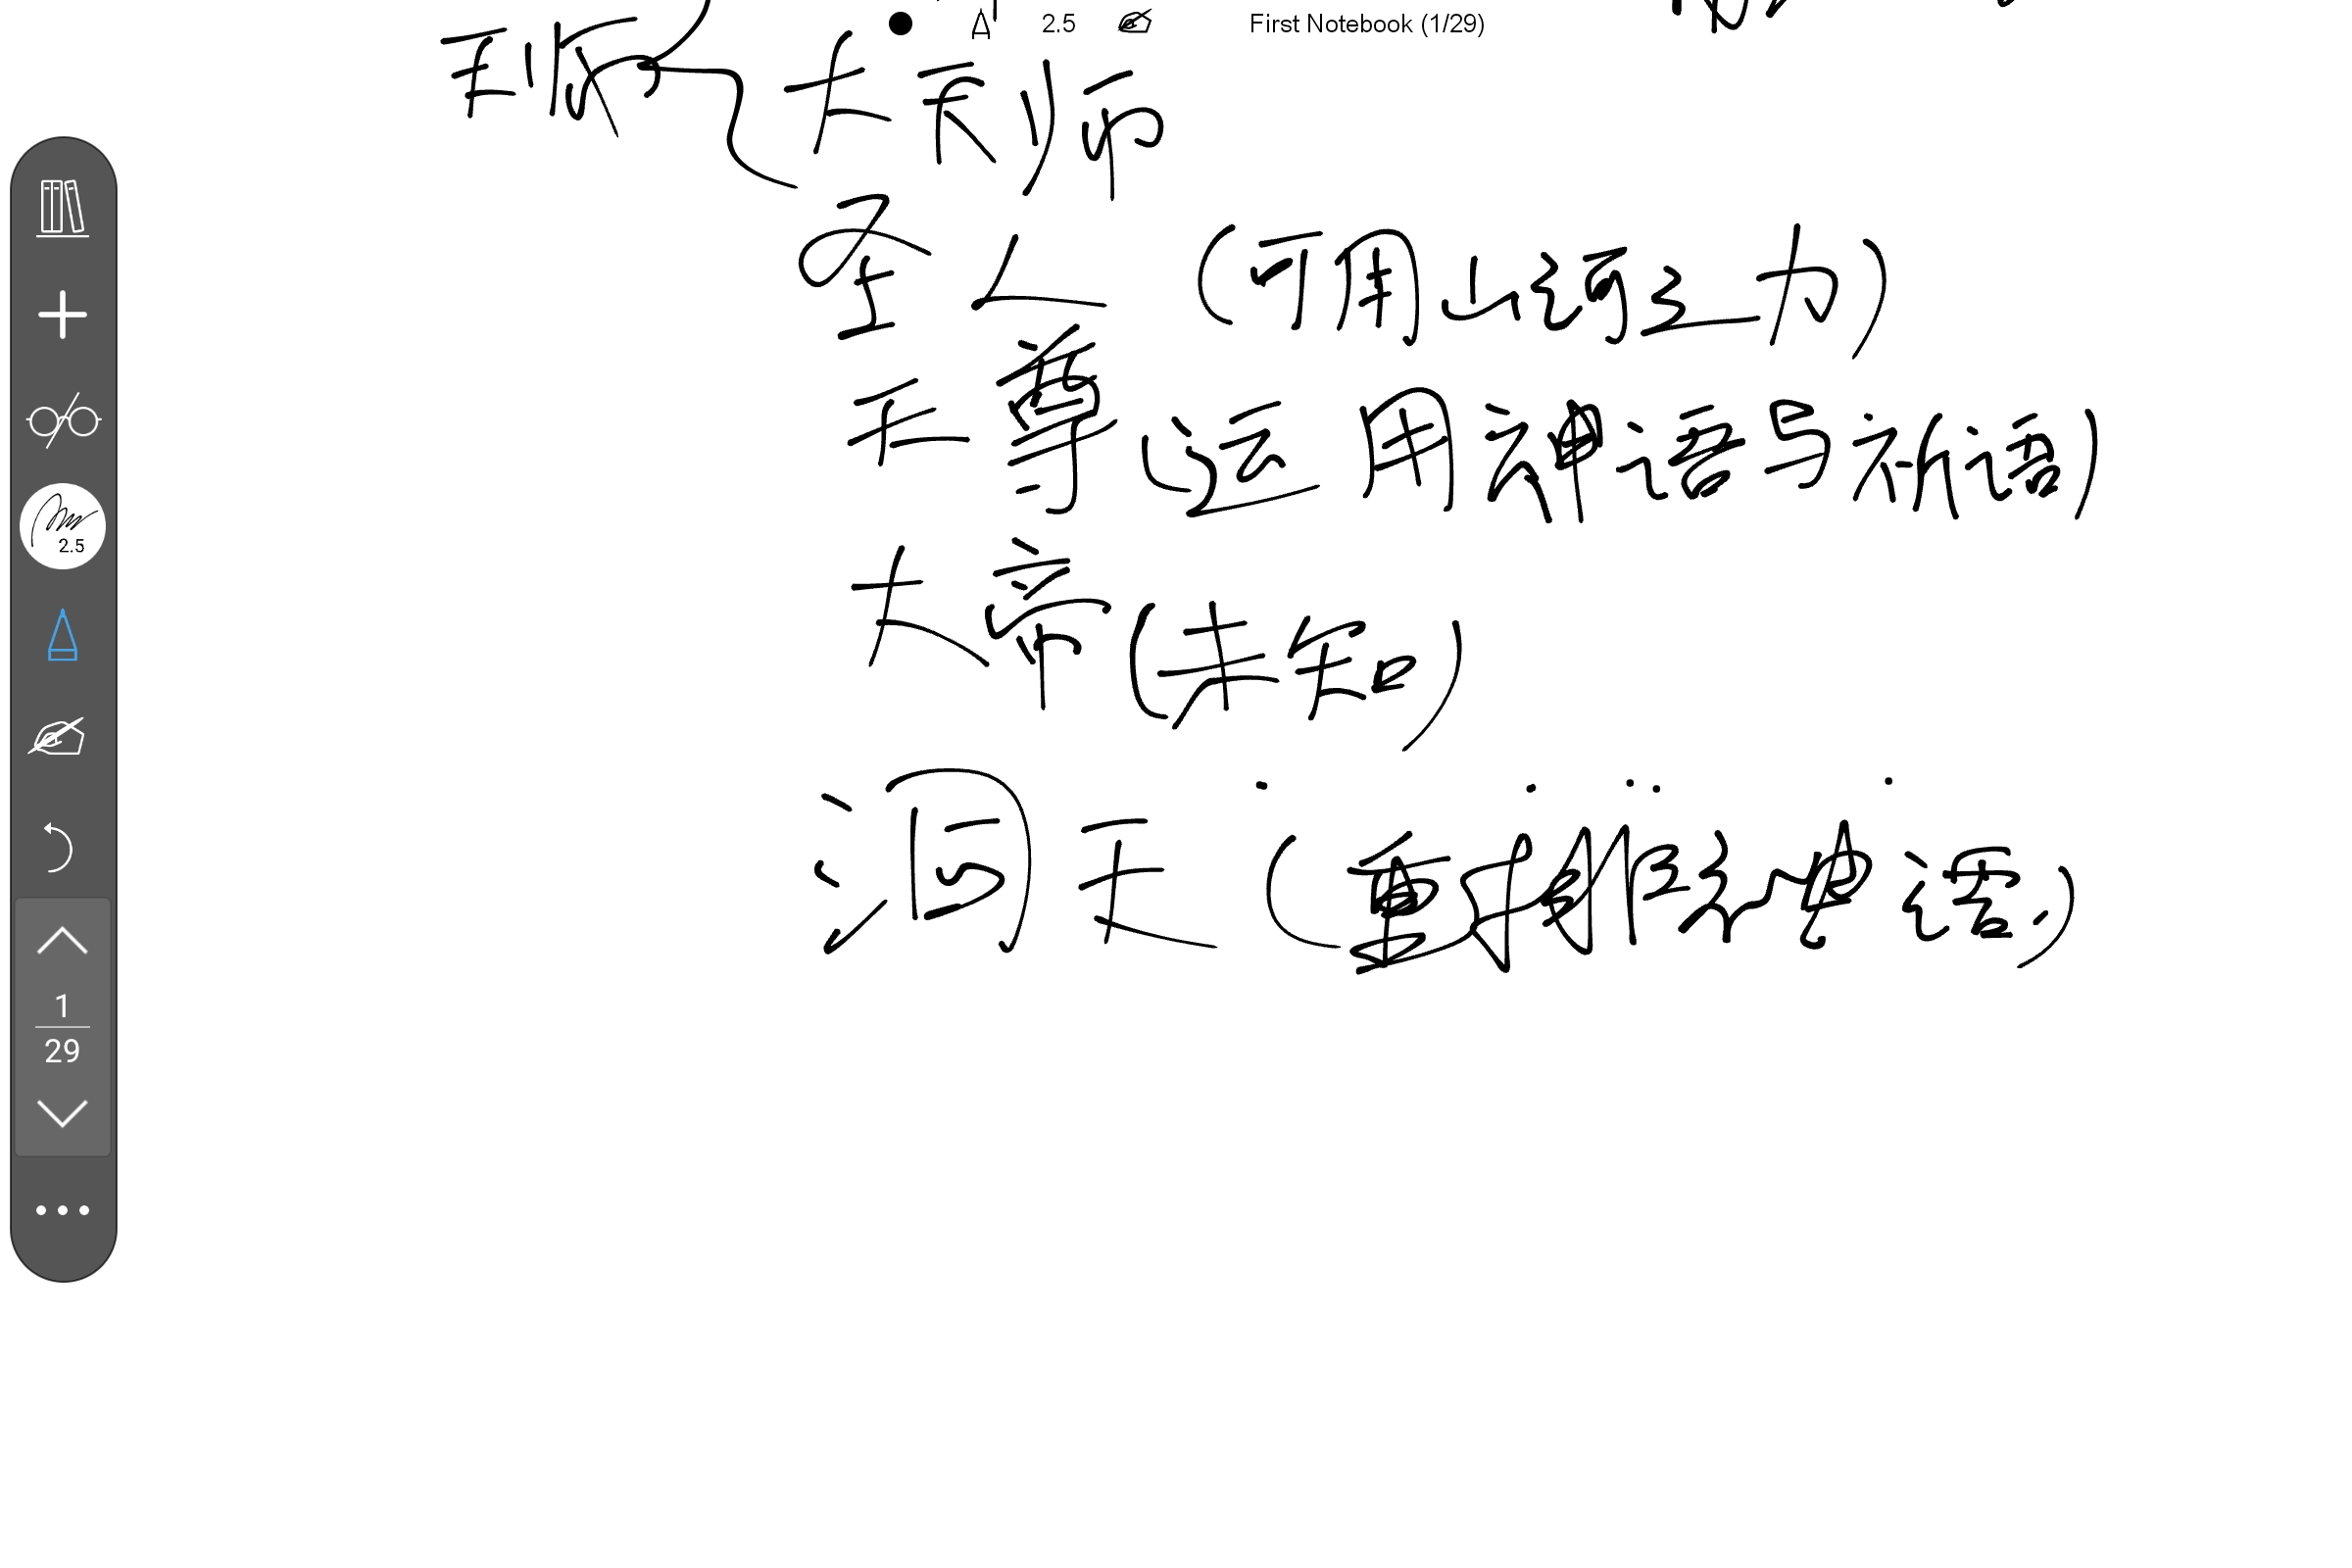 2.5 First Notebook (1/29)
大天师
圣人 (可用山河之力)
天尊 (运用神语与祈语)
2.5
大帝 (未知)
洞天 (重排神语)
1
29